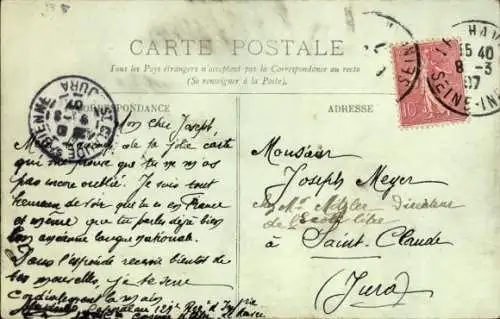 CARTE POSTALE
Tous les Pays étrangers n'acceptent pas la Correspondance au recto
(Se renseigner à la Poste).
CORRESPONDANCE
ADRESSE
Mon cher Joseph,
de ta jolie carte
qui me prouve que tu ne m'as
pas encore oublié. Je suis tout
heureux de voir que tu es en France
et même que tu parles déjà bien
ton ancienne langue nationale.
Dans l'espoir de recevoir bientôt de
tes nouvelles, je te serre
cordialement la main
129e Régt d'Infie
Monsieur
Joseph Meyer
chez Mr Directeur
de l'école libre
à Saint-Claude
(Jura)
8 -3
07
SEINE-INF
JURA
10